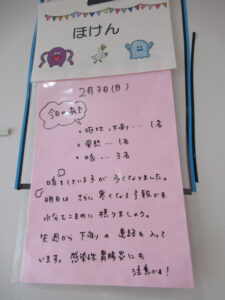 ほけん
2月3日(月)
今日の病欠
・嘔吐、下痢…1名
・発熱…1名
・咳…3名
咳をしている子が多くなりました。
明日は さらに寒くなる予報です。
水分をこまめに摂りましょう。
先週から下痢の連絡も入って
います。感染性胃腸炎にも
注意です!